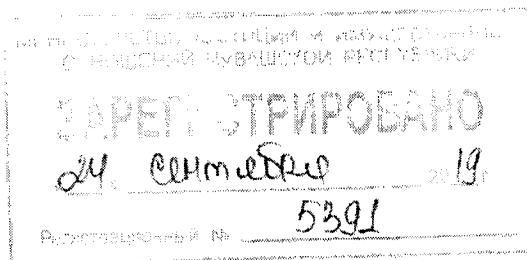 МИНИСТЕРСТВО ЮСТИЦИИ И ИМУЩЕСТВЕННЫХ
ОТНОШЕНИЙ ЧУВАШСКОЙ РЕСПУБЛИКИ
ЗАРЕГИСТРИРОВАНО
24 сентября 2019 г
Регистрационный № 5391